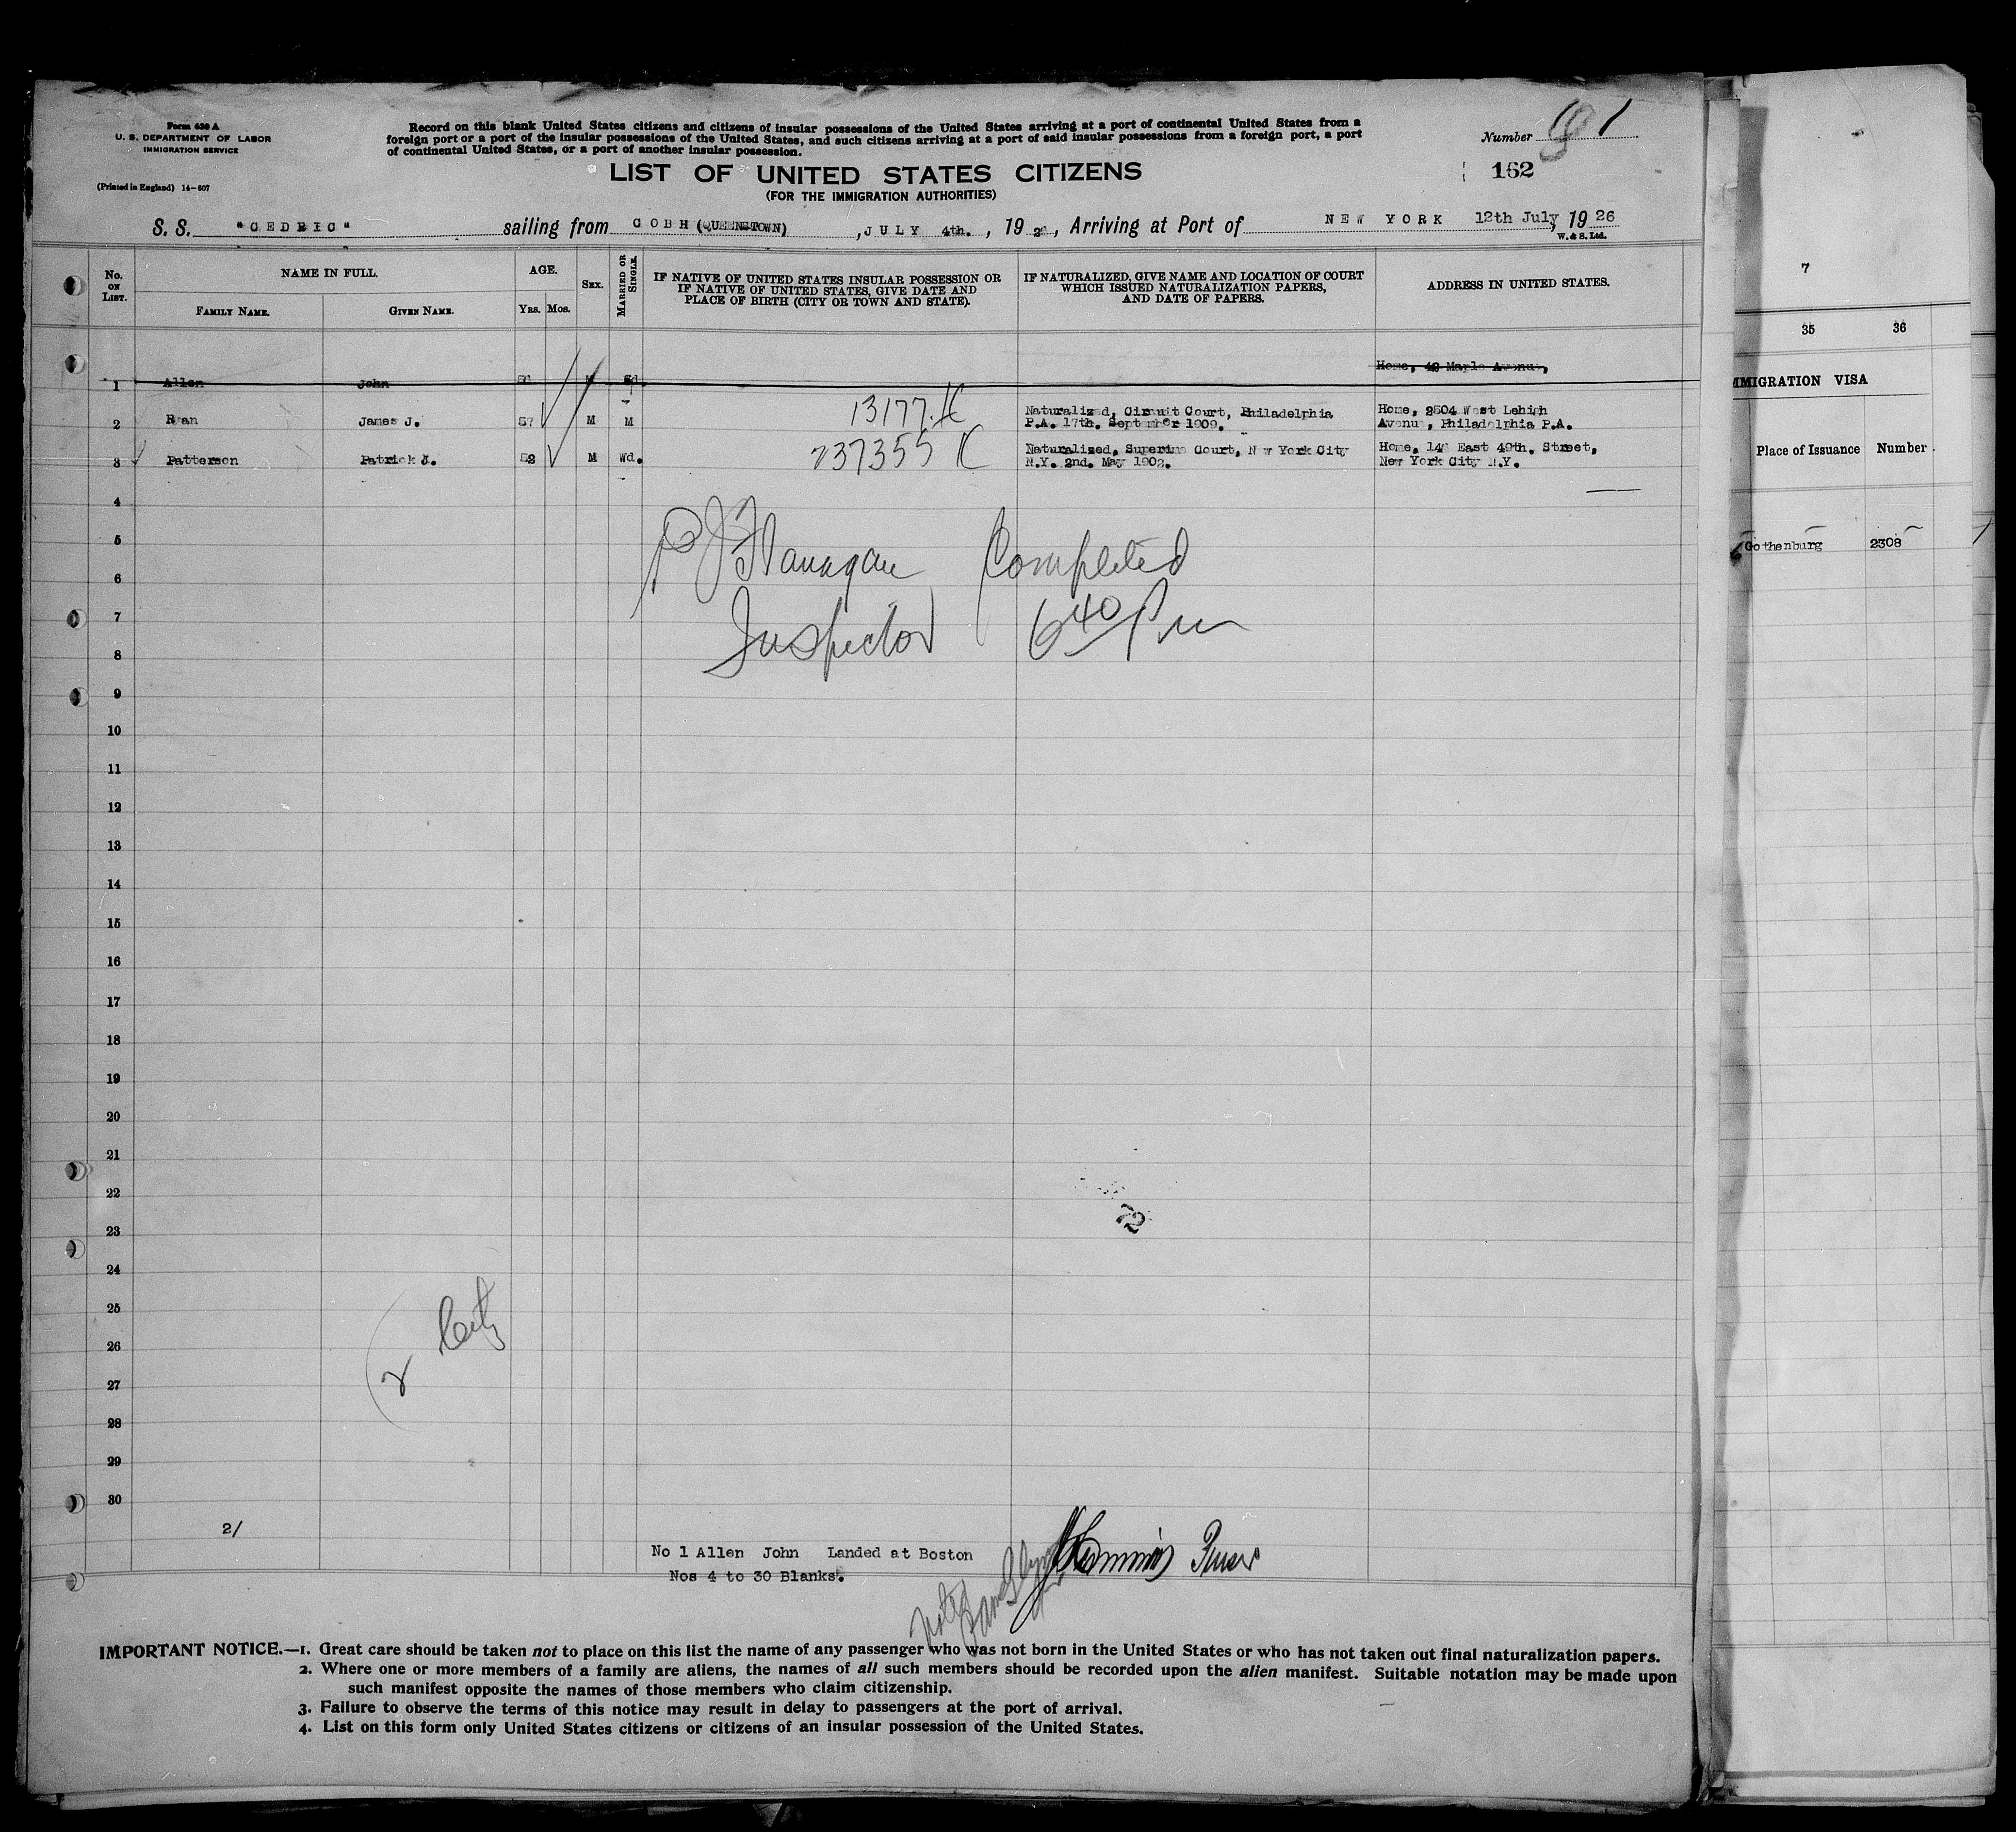 Form 630 A
U. S. DEPARTMENT OF LABOR
IMMIGRATION SERVICE
(Printed in England) 14-607
Record on this blank United States citizens and citizens of insular possessions of the United States arriving at a port of continental United States from a
foreign port or a port of the insular possessions of the United States, and such citizens arriving at a port of said insular possessions from a foreign port, a port
of continental United States, or a port of another insular possession.
Number 1
162
LIST OF UNITED STATES CITIZENS
(FOR THE IMMIGRATION AUTHORITIES)
S. S. "CEDRIC" sailing from COBH (QUEENSTOWN), JULY 4th., 19 26, Arriving at Port of NEW YORK 12th July, 19 26
W. & S. Ltd.
No. ON LIST.
NAME IN FULL.
FAMILY NAME.
GIVEN NAME.
AGE.
YRS. MOS.
SEX.
MARRIED OR SINGLE.
IF NATIVE OF UNITED STATES INSULAR POSSESSION OR
IF NATIVE OF UNITED STATES, GIVE DATE AND
PLACE OF BIRTH (CITY OR TOWN AND STATE).
IF NATURALIZED, GIVE NAME AND LOCATION OF COURT
WHICH ISSUED NATURALIZATION PAPERS,
AND DATE OF PAPERS.
ADDRESS IN UNITED STATES.
Home, 49 Maple Avenue,
1 Allen John M
2 Ryan James J. 57 M M 13177. K Naturalized, Circuit Court, Philadelphia Home, 2504 West Lehigh
P.A. 17th. September 1909. Avenue, Philadelphia P.A.
3 Patterson Patrick J. 52 M Wd. 237355 K Naturalized, Superior Court, New York City Home, 146 East 49th. Street,
N.Y. 2nd. May 1902. New York City N.Y.
4
5
P J Flanagan Completed
6
7
Inspector 6 40 P m
8
9
10
11
12
13
14
15
16
17
18
19
20
21
22
23
72
24
25
26
27
2
28
29
30
2/
No 1 Allen John Landed at Boston
Nos 4 to 30 Blanks.
Purser
IMPORTANT NOTICE.—1. Great care should be taken not to place on this list the name of any passenger who was not born in the United States or who has not taken out final naturalization papers.
2. Where one or more members of a family are aliens, the names of all such members should be recorded upon the alien manifest. Suitable notation may be made upon
such manifest opposite the names of those members who claim citizenship.
3. Failure to observe the terms of this notice may result in delay to passengers at the port of arrival.
4. List on this form only United States citizens or citizens of an insular possession of the United States.
7
35 36
IMMIGRATION VISA
Place of Issuance Number
Gothenburg 2308